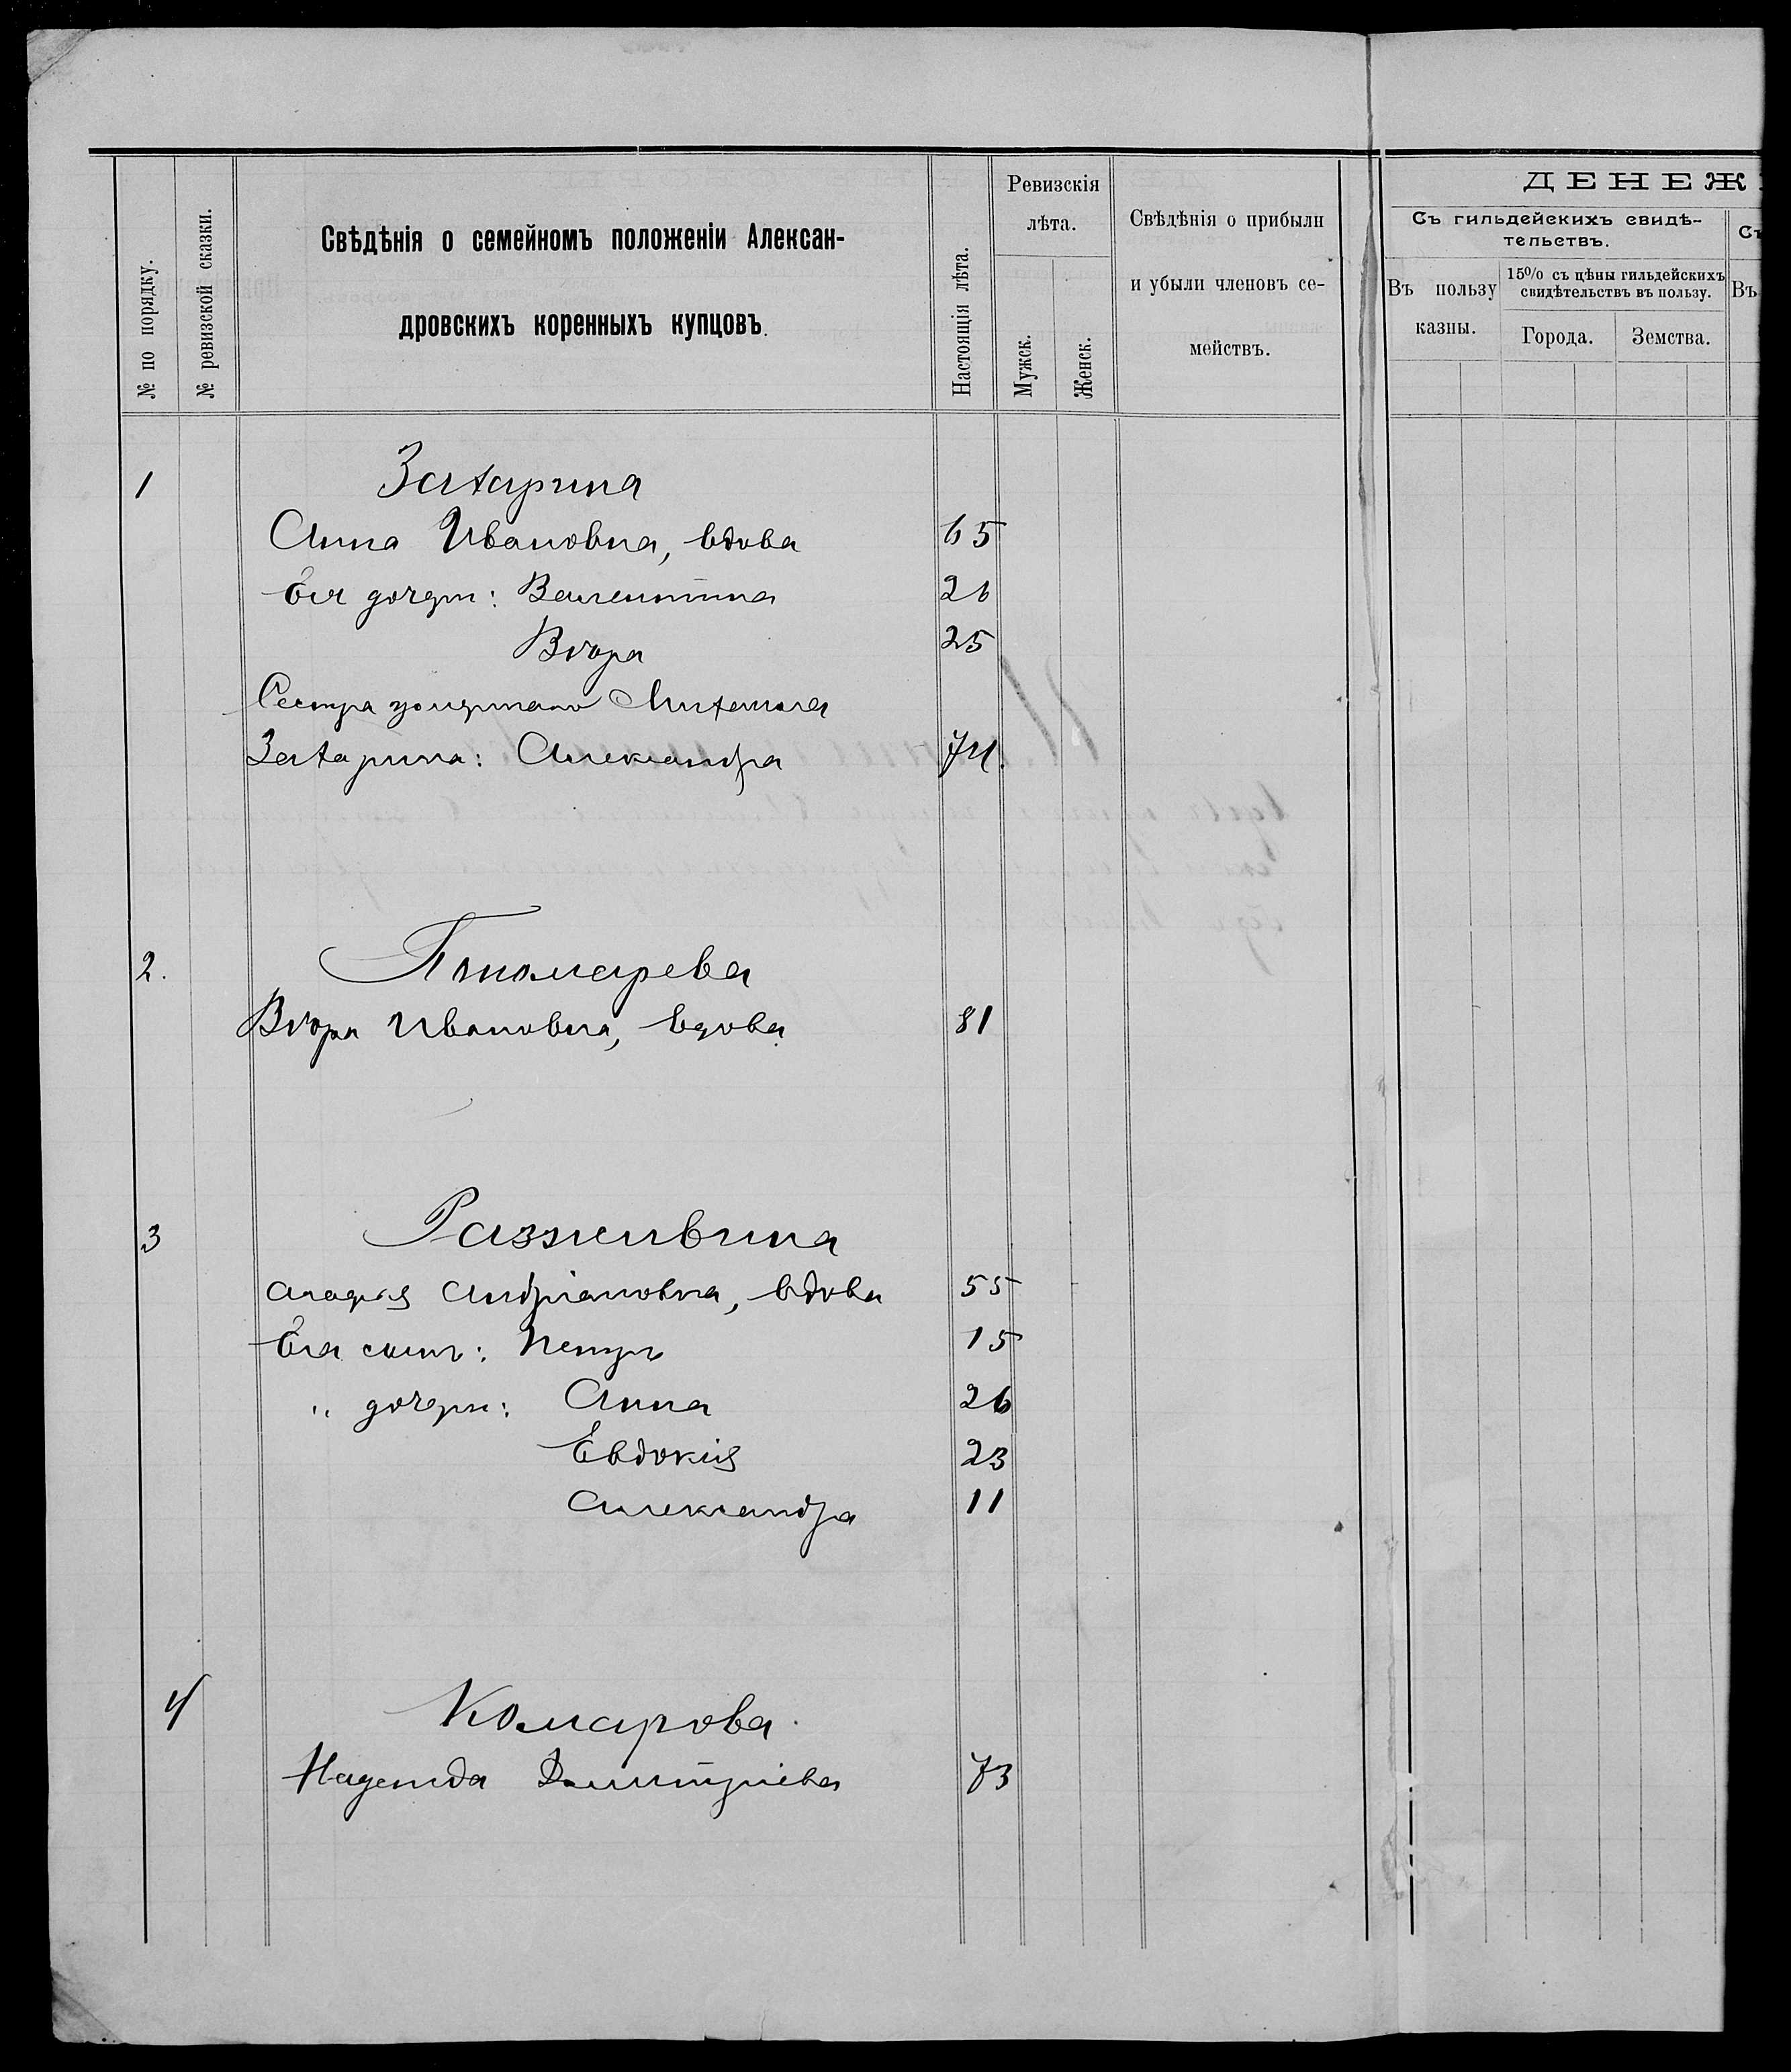 № по порядку.
№ ревизской сказки.
Свѣдѣнія о семейномъ положеніи Алексан-
дровскихъ коренныхъ купцовъ.
Настоящія лѣта.
Ревизскія
лѣта.
Мужск.
Женск.
Свѣдѣнія о прибыли
и убыли членовъ се-
мействъ.
ДЕНЕЖ
Съ гильдейскихъ свидѣ-
тельствъ.
Въ пользу
казны.
15% съ цѣны гильдейскихъ
свидѣтельствъ въ пользу.
Города.
Земства.
Съ
Въ
1 Захарина
Анна Ивановна, вдова 65
Ея дочери: Валентина 26
Вѣра 25
Сестра умершаго Михаила
Захарина: Александра 74.
2. Пономарева
Вѣра Ивановна, вдова 81
3 Разживина
Андріановна, вдова 55
Ея сынъ: Петръ 15
" дочери: Анна 26
Евдокія 23
Александра 11
4 Комарова
Надежда Дмитріева 73